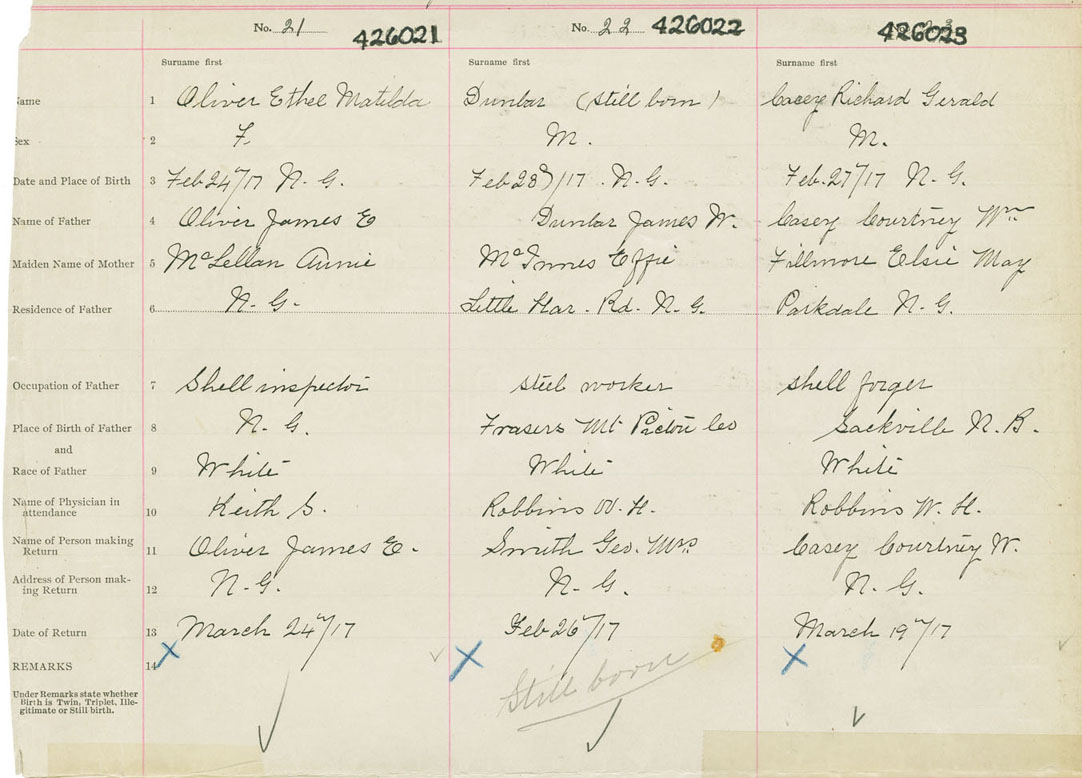 No. 21 426021 No. 22 426022 426023
Surname first Surname first Surname first
Name 1 Oliver Ethel Matilda Dunbar (Still born) Casey Richard Gerald
Sex 2 F. M. M.
Date and Place of Birth 3 Feb 24"/17 N. G. Feb /17 . N. G. Feb. 27"/17 N. G.
Name of Father 4 Oliver James E Dunbar James W. Casey Courtney Wm
Maiden Name of Mother 5 McLellan Annie McInnes Effie Fillmore Elsie May
Residence of Father 6 N. G. Little Har. Rd. N. G. Parkdale N. G.
Occupation of Father 7 Shell inspector steel worker shell forger
Place of Birth of Father 8 N. G. Frasers Mt Pictou Co Sackville N. B.
and
Race of Father 9 White White White
Name of Physician in
attendance 10 Keith S. Robbins W. H. Robbins W. H.
Name of Person making
Return 11 Oliver James E. Smith Geo. Mrs Casey Courtney W.
Address of Person mak-
ing Return 12 N. G. N. G. N. G.
Date of Return 13 March 24"/17 Feb 26"/17 March 19"/17
REMARKS 14
Still born
Under Remarks state whether
Birth is Twin, Triplet, Ille-
gitimate or Still birth.